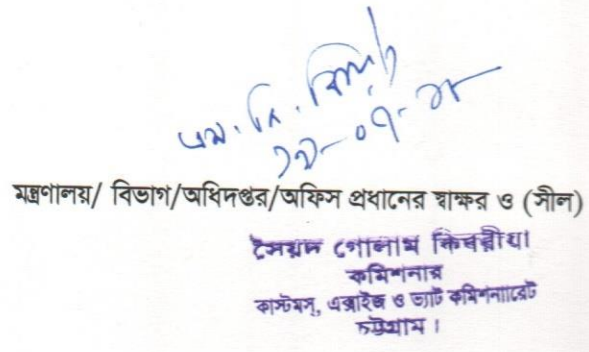 এম. জি. কিবরিয়া
১৯-০৭-২৮
মন্ত্রণালয়/ বিভাগ/অধিদপ্তর/অফিস প্রধানের স্বাক্ষর ও (সীল)
সৈয়দ গোলাম কিবরীয়া
কমিশনার
কাস্টমস্, এক্সাইজ ও ভ্যাট কমিশনারেট
চট্টগ্রাম।